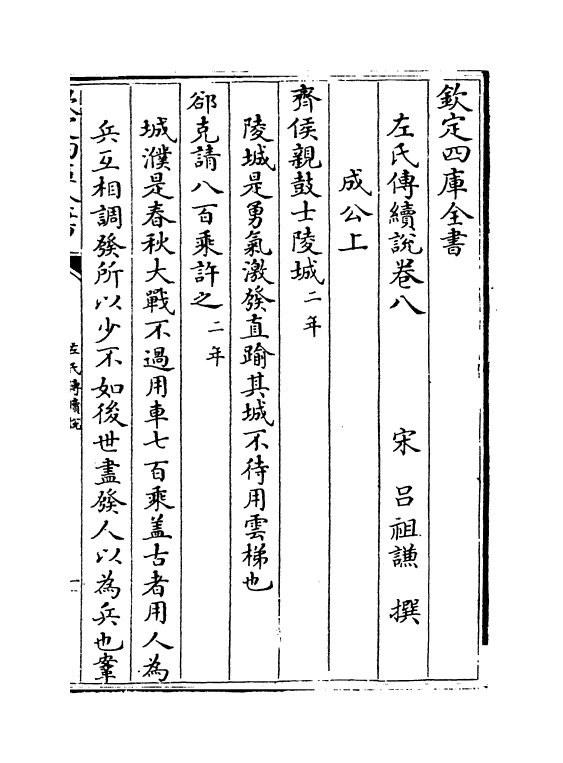 欽定四庫全書
左氏傳續說卷八
宋 呂祖謙 撰
成公上
齊侯親鼓士陵城二年
陵城是勇氣激發直踰其城不待用雲梯也
郤克請八百乘許之二年
城濮是春秋大戰不過用車七百乘盖古者用人為
兵互相調發所以少不如後世盡發人以為兵也鞌
左氏傳續說
一